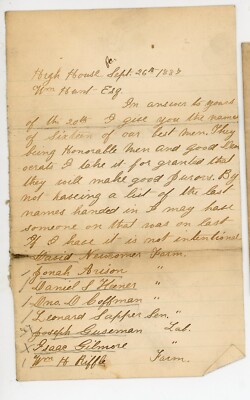 High House Sept. 26th 1887
Wm Hunt Esq.
In answer to yours
of the 20th I give you the names
of sixteen of our best men. They
being Honorable Men and good Dem
ocrats I take it for granted that
they will make good jurors. By
not haveing a list of the last
names handed in I may have
someone on that was on last
If I have it is not intentional
David Newcomer Farm.
1 Jonah Arison "
1 Daniel S Heener "
1 Dna. D. Coffman "
1 Leonard Sapper Sen. "
Joseph Guseman Lab.
Isaac Gilmore "
1 Wm H. Riffle Farm.